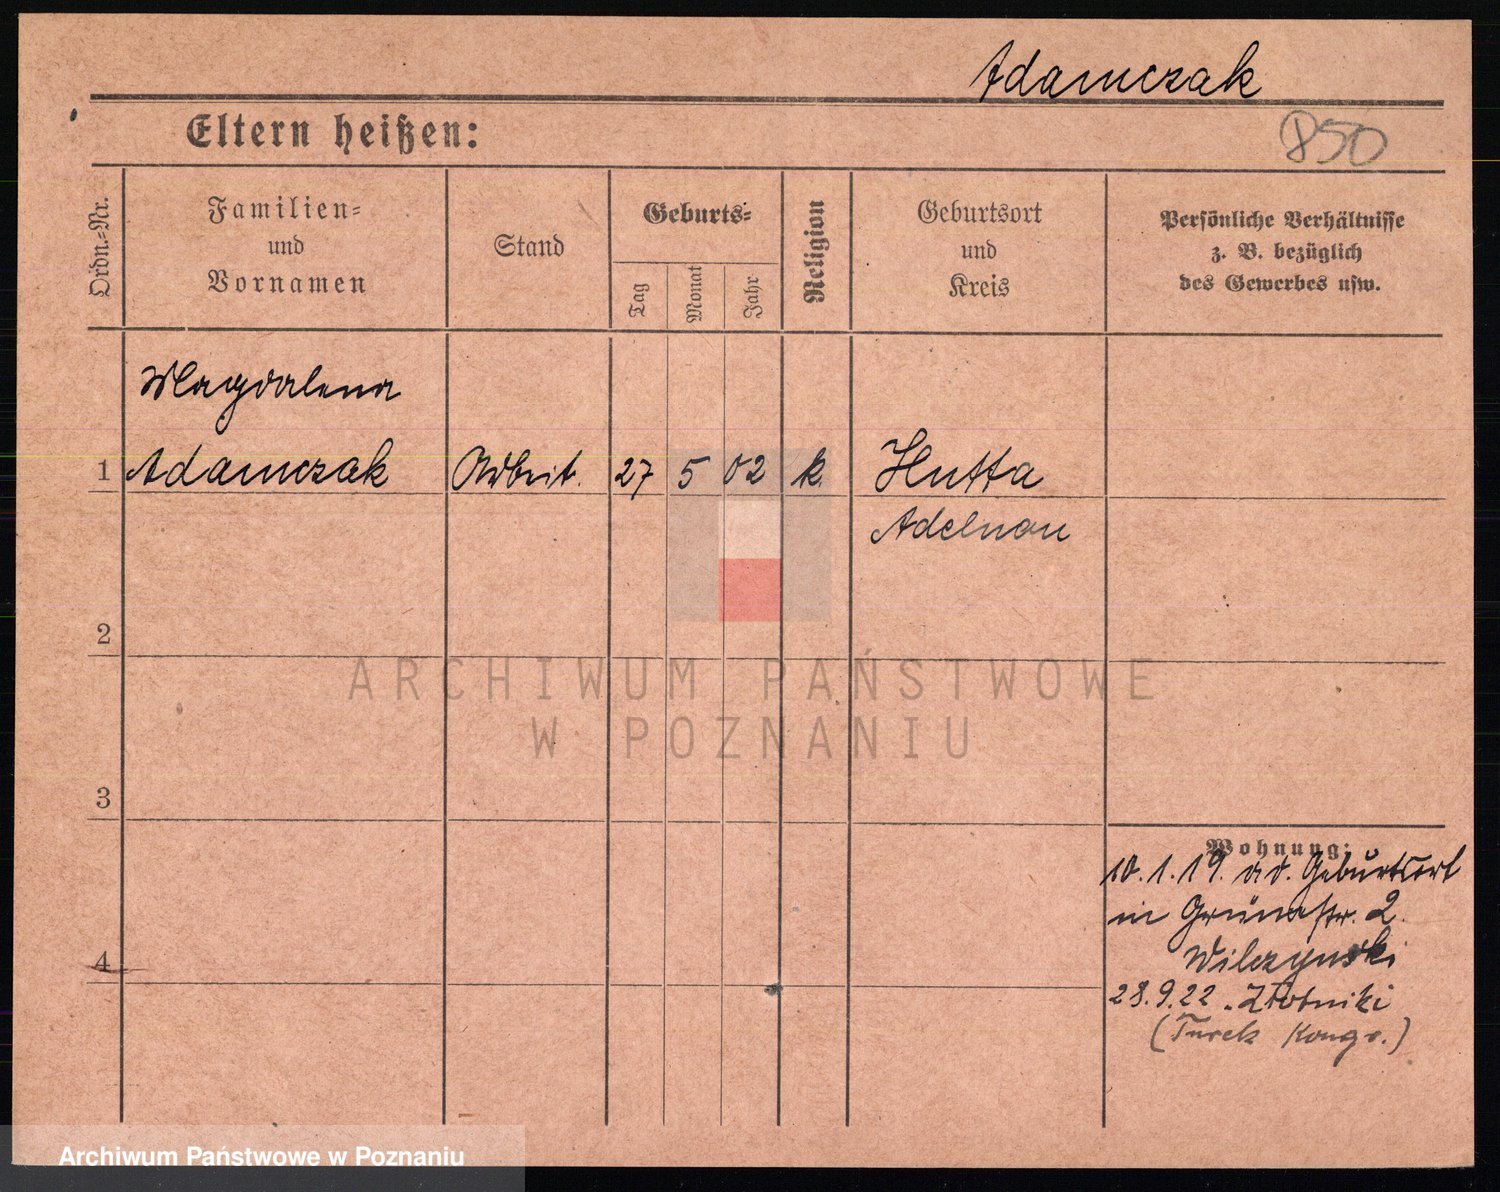 Adamczak
Eltern heißen:
850
Ordn.-Nr.
Familien-
und
Vornamen
Stand
Geburts-
Tag
Monat
Jahr
Religion
Geburtsort
und
Kreis
Persönliche Verhältnisse
z. B. bezüglich
des Gewerbes usw.
Magdalena
1 Adamczak Arbeit. 27 5 02 k. Hutta
Adelnau
2
3
4
Wohnung:
10.1.19. a d. Geburtsort
in Grünestr. 2.
Wilczynski
28.9.22. Złotniki
(Turek Kongr.)
ARCHIWUM PAŃSTWOWE
W POZNANIU
Archiwum Państwowe w Poznaniu